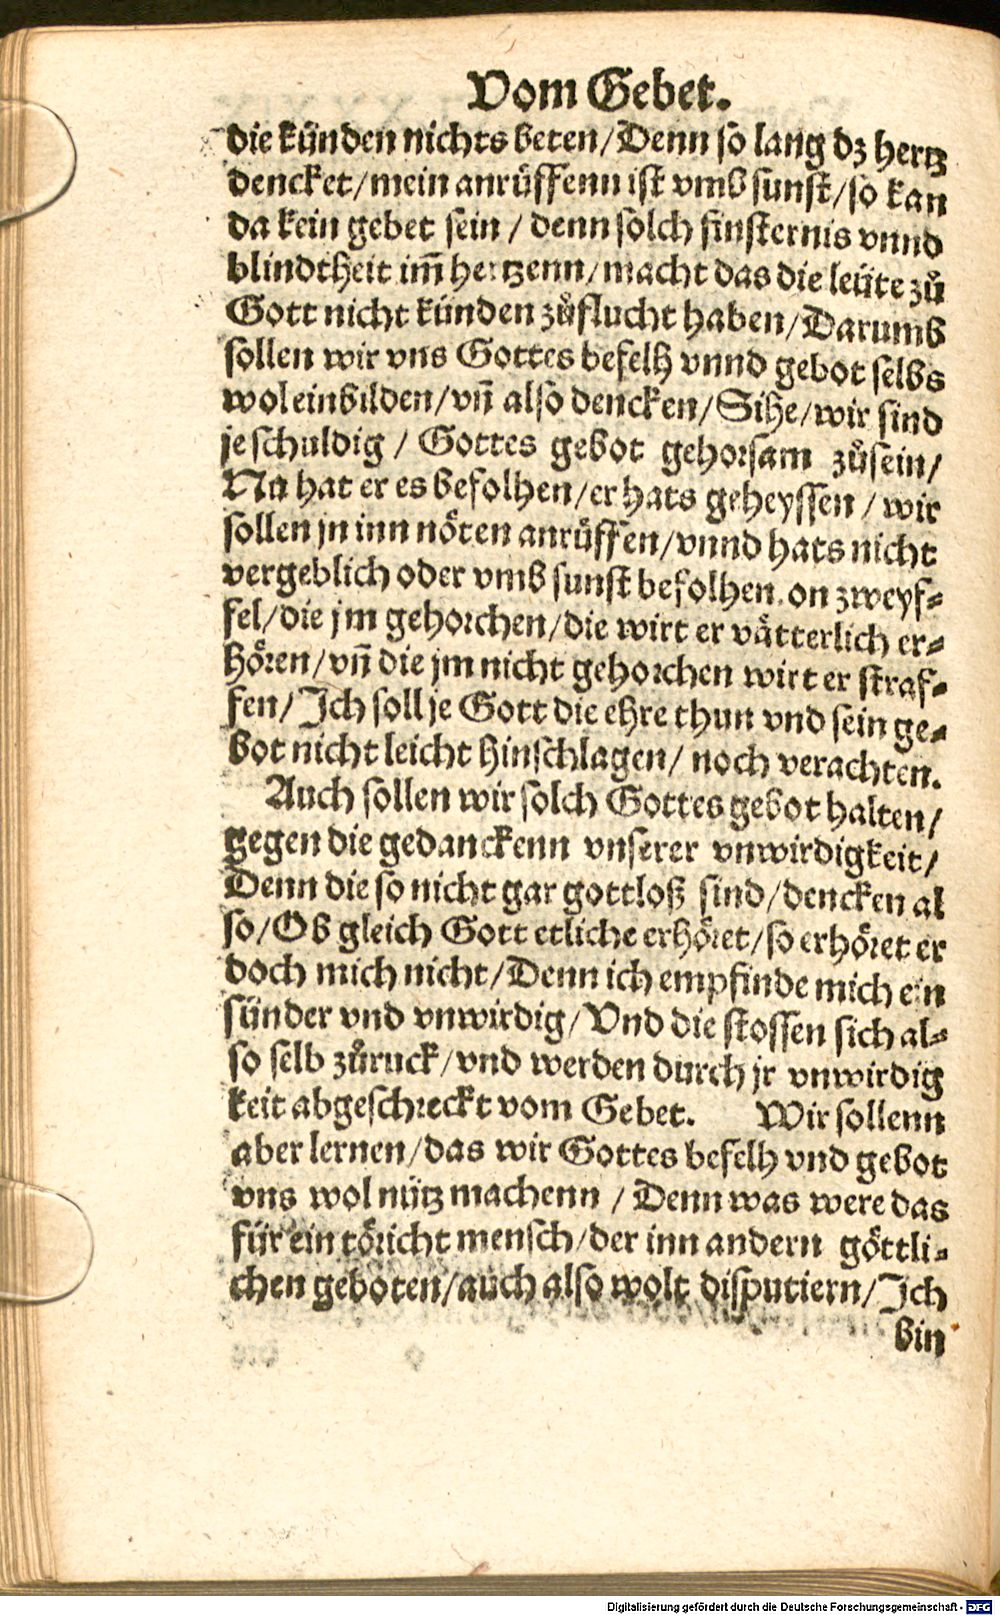 Vom Gebet.
die künden nichts beten/Denn so lang dz hertz
dencket/mein anrüffenn ist vmb sunst/so kan
da kein gebet sein / denn solch finsternis vnnd
blindtheit im̃ hertzenn/macht das die leüte zů
Gott nicht künden zůflucht haben/Darumb
sollen wir vns Gottes befelh vnnd gebot selbs
wol einbilden/vñ also dencken/Sihe/wir sind
je schuldig / Gottes gebot gehorsam zůsein/
Nu hat er es befolhen/er hats geheyssen / wir
sollen jn inn nöten anrüffen/vnnd hats nicht
vergeblich oder vmb sunst befolhen. on zweyf-
fel/die jm gehorchen/die wirt er vätterlich er-
hören/vñ die jm nicht gehorchen wirt er straf-
fen/Ich soll je Gott die ehre thun vnd sein ge-
bot nicht leicht hinschlagen/ noch verachten.
Auch sollen wir solch Gottes gebot halten/
gegen die gedanckenn vnserer vnwirdigkeit/
Denn die so nicht gar gottloß sind/dencken al
so/Ob gleich Gott etliche erhöret/so erhöret er
doch mich nicht/Denn ich empfinde mich ein
sünder vnd vnwirdig/Vnd die stossen sich al-
so selb zůruck/vnd werden durch jr vnwirdig
keit abgeschreckt vom Gebet. Wir sollenn
aber lernen/das wir Gottes befelh vnd gebot
vns wol nütz machenn / Denn was were das
für ein töricht mensch/der inn andern göttli-
chen geboten/auch also wolt disputiern/Ich
bin
Digitalisierung gefördert durch die Deutsche Forschungsgemeinschaft - DFG